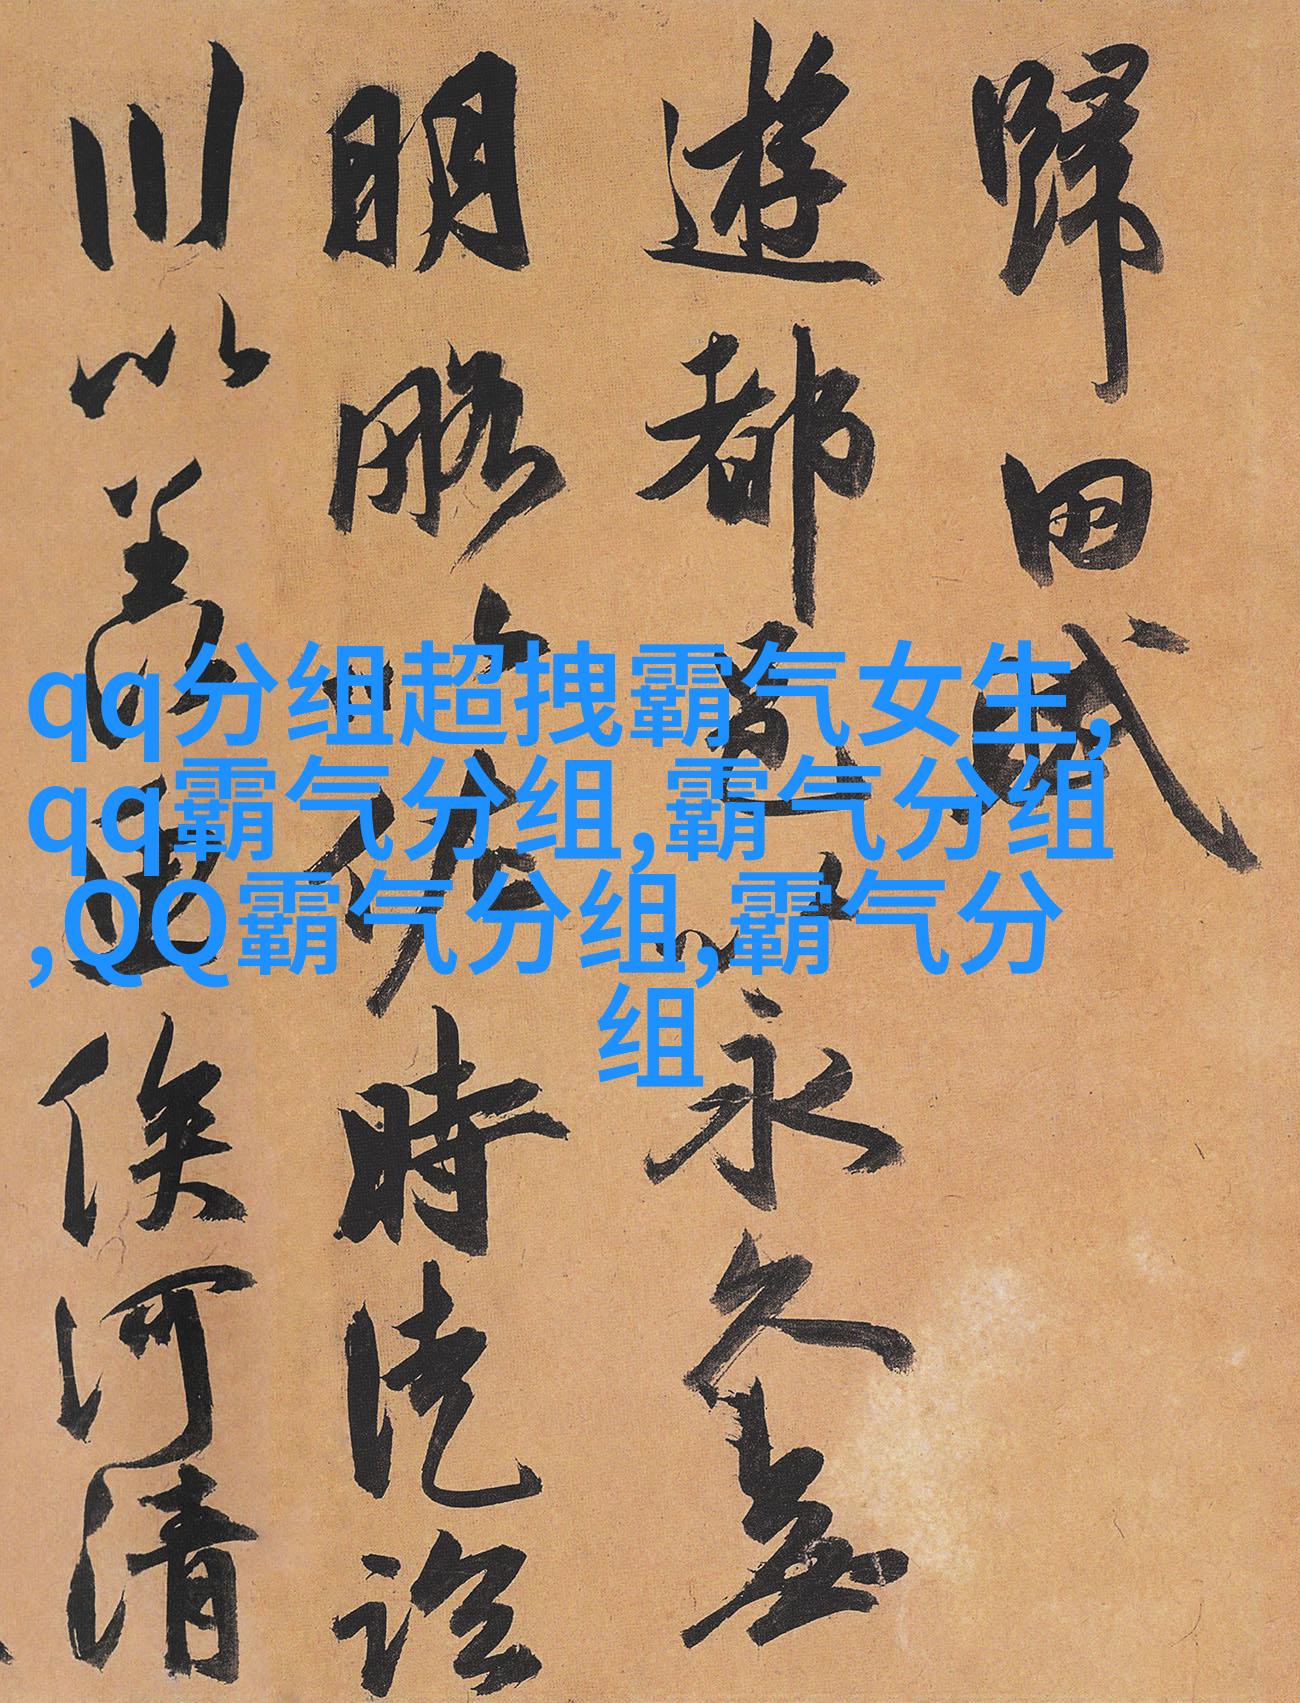 歸田賦
遊都邑以永久無
明略以佐時徒臨
川以羡魚俟河清
qq分组超拽霸气女生,
qq霸气分组,霸气分组
,QQ霸气分组,霸气分
组